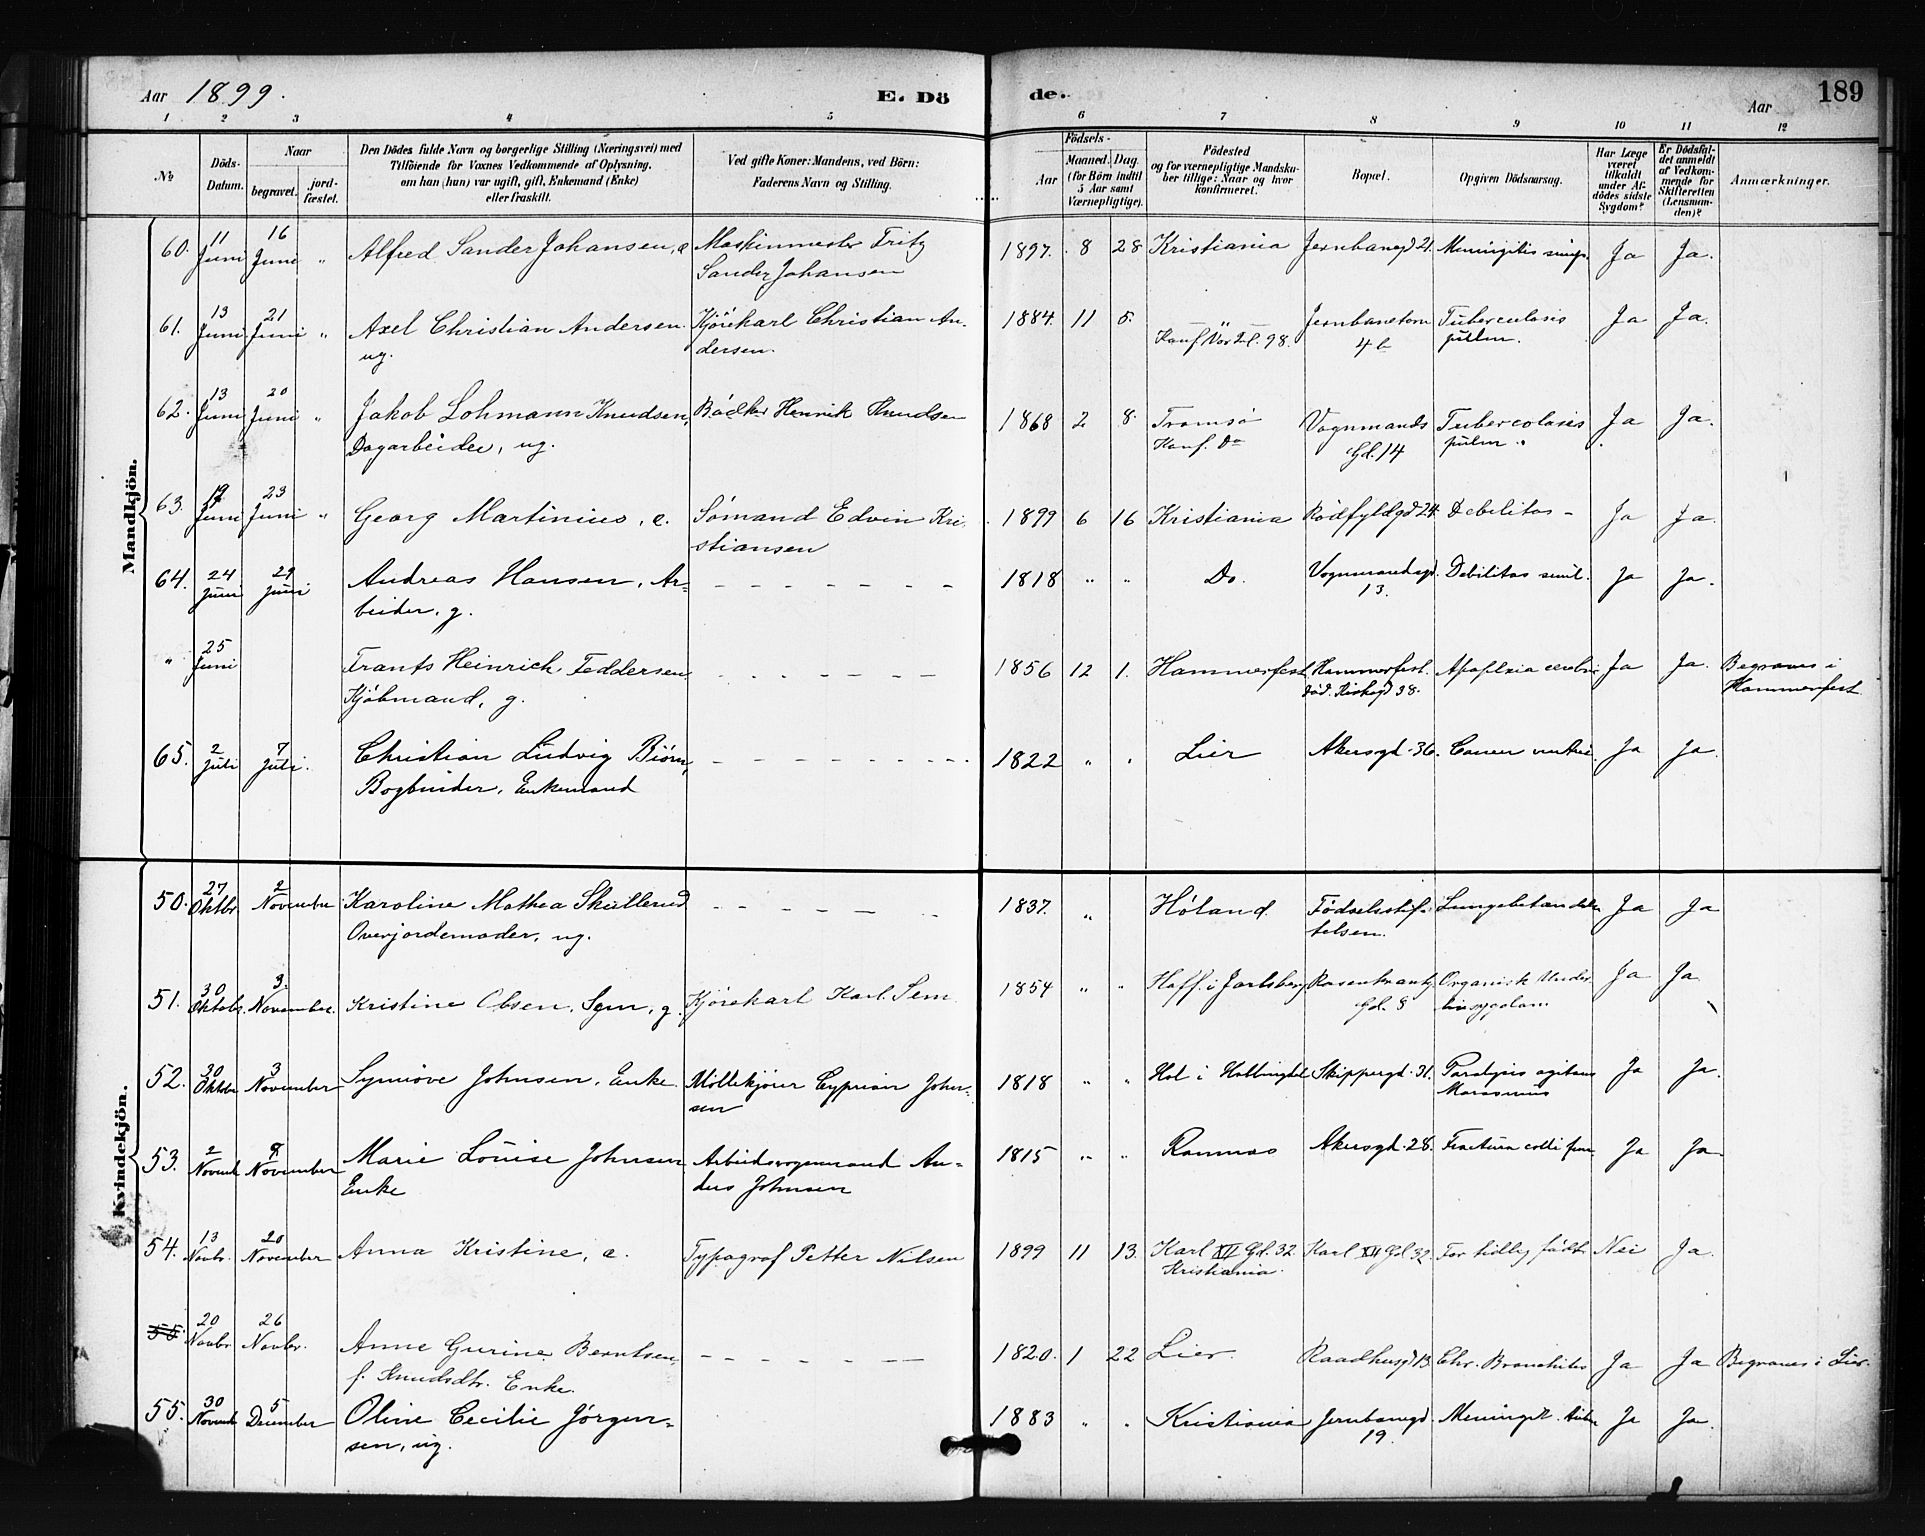 Aar 1899. E. Dö de. Aar 189
1 2 3 4 5 6 7 8 9 10 11 12
No Döds-Datum. Naar begravet. jord-fæstet. Den Dödes fulde Navn og borgerlige Stilling (Næringsvei) med Tilföiende for Voxnes Vedkommende af Oplysning, om han (hun) var ugift, gift, Enkemand (Enke) eller fraskilt. Ved gifte Koner: Mandens, ved Börn: Faderens Navn og Stilling. Aar Födsels- Maaned. Dag. (for Börn indtil 5 Aar samt Værnepligtige). Födested og for værnepligtige Mandsku-ber tillige: Naar og hvor konfirmeret. Bopæl. Opgiven Dödsaarsag. Har Læge været tilkaldt under Af-dödes sidste Sygdom? Er Dödsfal-det anmeldt af Vedkom-mende for Skifteretten (Lensman-den)? Anmærkninger.
Mandkjön.
60. 11 Juni 16 Juni " Alfred Sander Johansen, e Maskinmester Fritz 1897. 8 28 Kristiania Jernbanegd 21. Meningitis simpl. Ja Ja.
Sander Johansen
61. 13 Juni 21 Juni " Axel Christian Andersen Kjörekarl Christian An- 1884. 11 5. " Jernbanetorv Tuberculosis Ja Ja.
ug. dersen. Konf. Vor Frl. 98. 4 b pulm.
62. 13 Juni 20 Juni " Jakob Lohmann Knudsen, Bödker Henrik Knudsen 1868 2 8. Tromsö Vognmands Tubercolosis Ja Ja.
Dagarbeider, ug. Konf. Do Gd. 14 pulm.
63. 19 Juni 23 Juni " Georg Martinius, e. Sömand Edvin Kri- 1899 6 16 Kristiania Rödfyldgd 24. Debilitas - Ja Ja.
stiansen
64. 24 Juni 29 Juni Andreas Hansen, Ar- 1818 " " Do. Vognmandsgd. Debilitas senil. Ja Ja.
beider, g. 13.
" 25 Juni Frants Heinrich Feddersen 1856 12 1. Hammerfest Hammerfest. Apoplexia cerebri Ja Ja. Begraves i
Kjöbmand, g. död. Kirkegd 38. Hammerfest
65. 2 Juli 7 Juli. Christian Ludvig Biörn, 1822 " " Lier Akersgd. 36. Cancer ventri Ja Ja.
Bogbinder, Enkemand
Kvindekjön.
50. 27 Oktbr. 2 November Karoline Mathea Skullerud 1837. " Höland. Födselsstif- Lungebetændelse Ja Ja
Overjordemoder, ug. telsen.
51. 30 Oktobr. 3. November. Kristine Olsen, Sem, g. Kjörekarl Karl Sem 1854 " " Hoff. i Jarlsberg Rosenkrantz Organisk Under- Ja Ja
Gd. 8 livssygdom
52. 30 Oktbr 3 November Synnöve Johnsen, Enke Möllekjörer Cyprian John- 1818 " " Hol i Hallingdal Skippergd. 31. Paralysis agitans Ja Ja.
sen Marasmus
53. 2 Novemb November Marie Louise Johnsen Arbeidsvognmand An- 1815 " " Ramnæs Akersgd. 28. Fractura colli fem. Ja Ja
Enke ders Johnsen
54. 13 Novbr. 20 November Anna Kristine, e. Typograf Petter Nilsen 1899 11 13. Karl XII Gd. 32. Karl XII Gd 32. For tidlig födt Nei Ja.
Kristiania.
55. 20 Novbr. 26 Novbr. Anne Gurine Berntsen, 1820. 1 22 Lier. Raadhusgd 13. Chr. Bronchitis Ja Ja Begraves i Lier.
f. Knudsdtr. Enke.
55. 30 Novemb 5 December Oline Cecilie Jörgen- 1883 " " Kristiania Jernbanegd. Meningit. tuber Ja Ja.
sen, ug. 19.